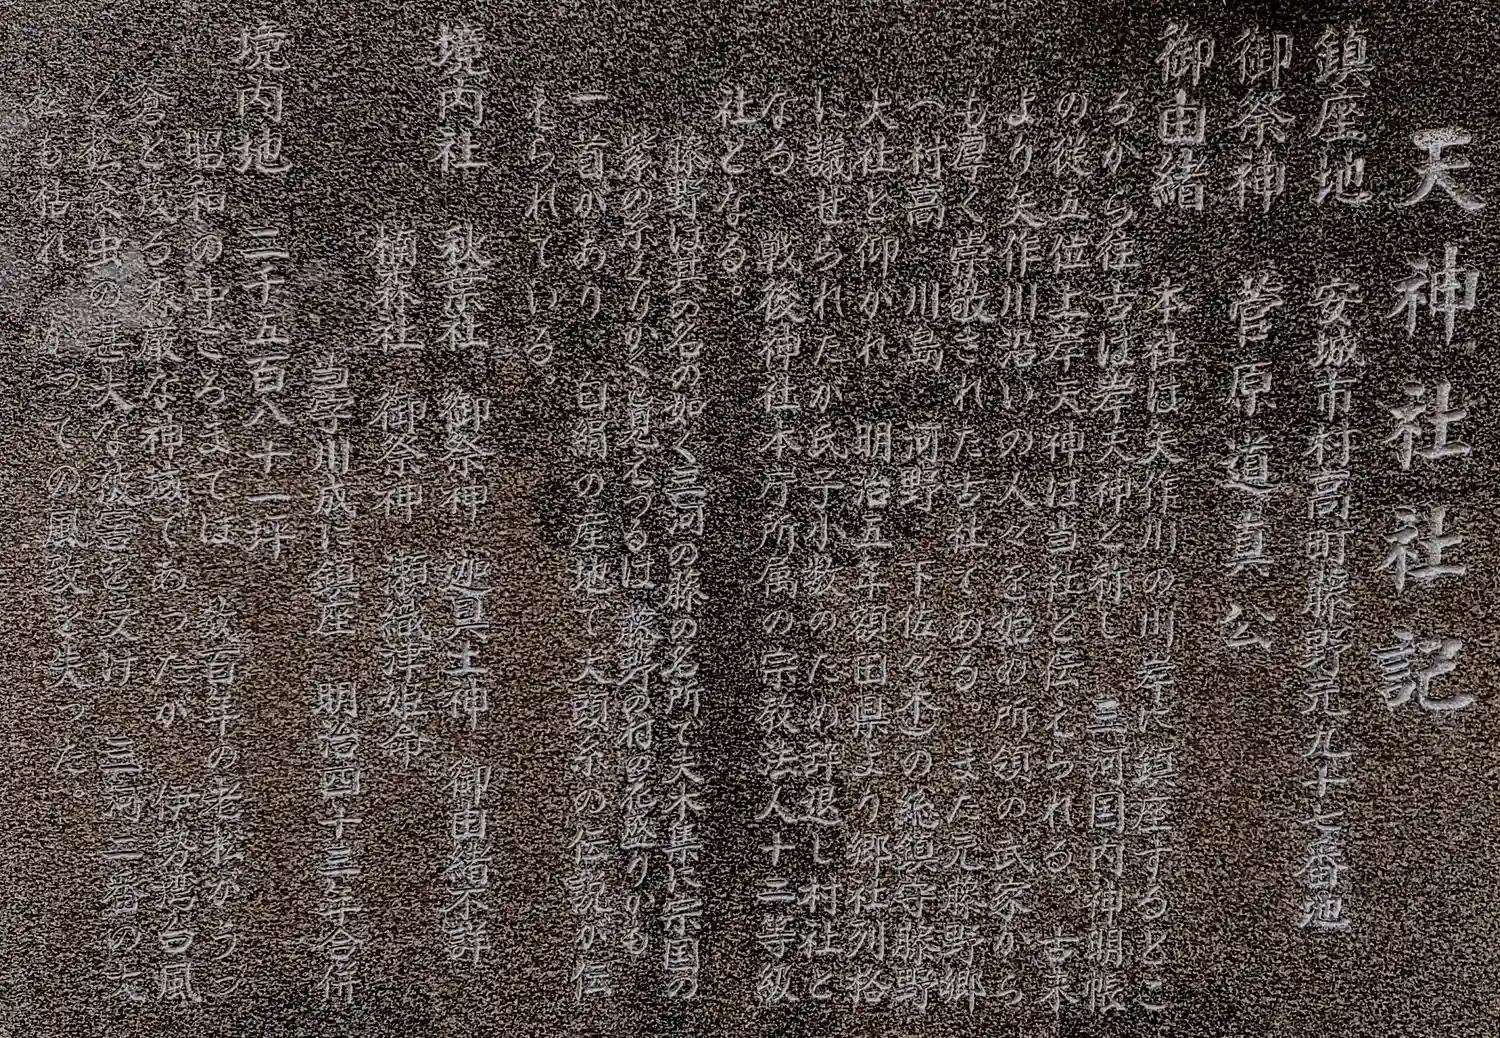 天神社社記
鎮座地　安城市村高町藤野元九十七番地
御祭神　菅原道真公
御由緒　本社は矢作川の川岸に鎮座するとこ
ろから往古は岸天神と称し　三河国内神明帳
の従五位上岸天神は当社と伝えられる。古来
より矢作川沿いの人々を始め所領の武家から
も厚く崇敬された古社である。また元藤野郷
へ村高　川島　河野　下佐々木の総鎮守藤野
大社と仰がれ　明治五年額田県より郷社列格
に議せられたが氏子小数のため辞退し村社と
なる　戦後神社本庁所属の宗教法人十二等級
社となる。
藤野は其の名の如く三河の藤の名所で夫木集に宗国の
紫の糸くりかくと見えつるは　藤野の村の花盛りかも
一首があり　白絹の産地で犬頭糸の伝説が伝
えられている。
境内社　秋葉社　御祭神　迦具土神　御由緒不詳
楠森社　御祭神　瀬織津姫命
当字川成に鎮座　明治四十三年合併
境内地　二千五百八十一坪
昭和の中ごろまでは　幾百年の老松がうっ
倉と茂る森厳な神域であったが　伊勢湾台風
と松食虫の甚大な被害を受け　三河二番の大
松も枯れ　かつての風致を失った。